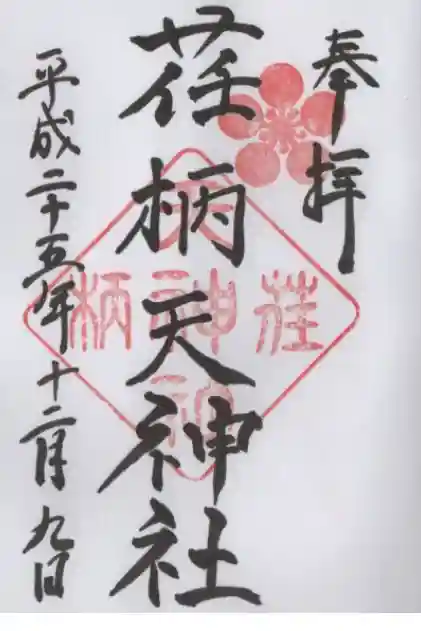 奉拝
荏柄天神社
平成二十五年十二月九日